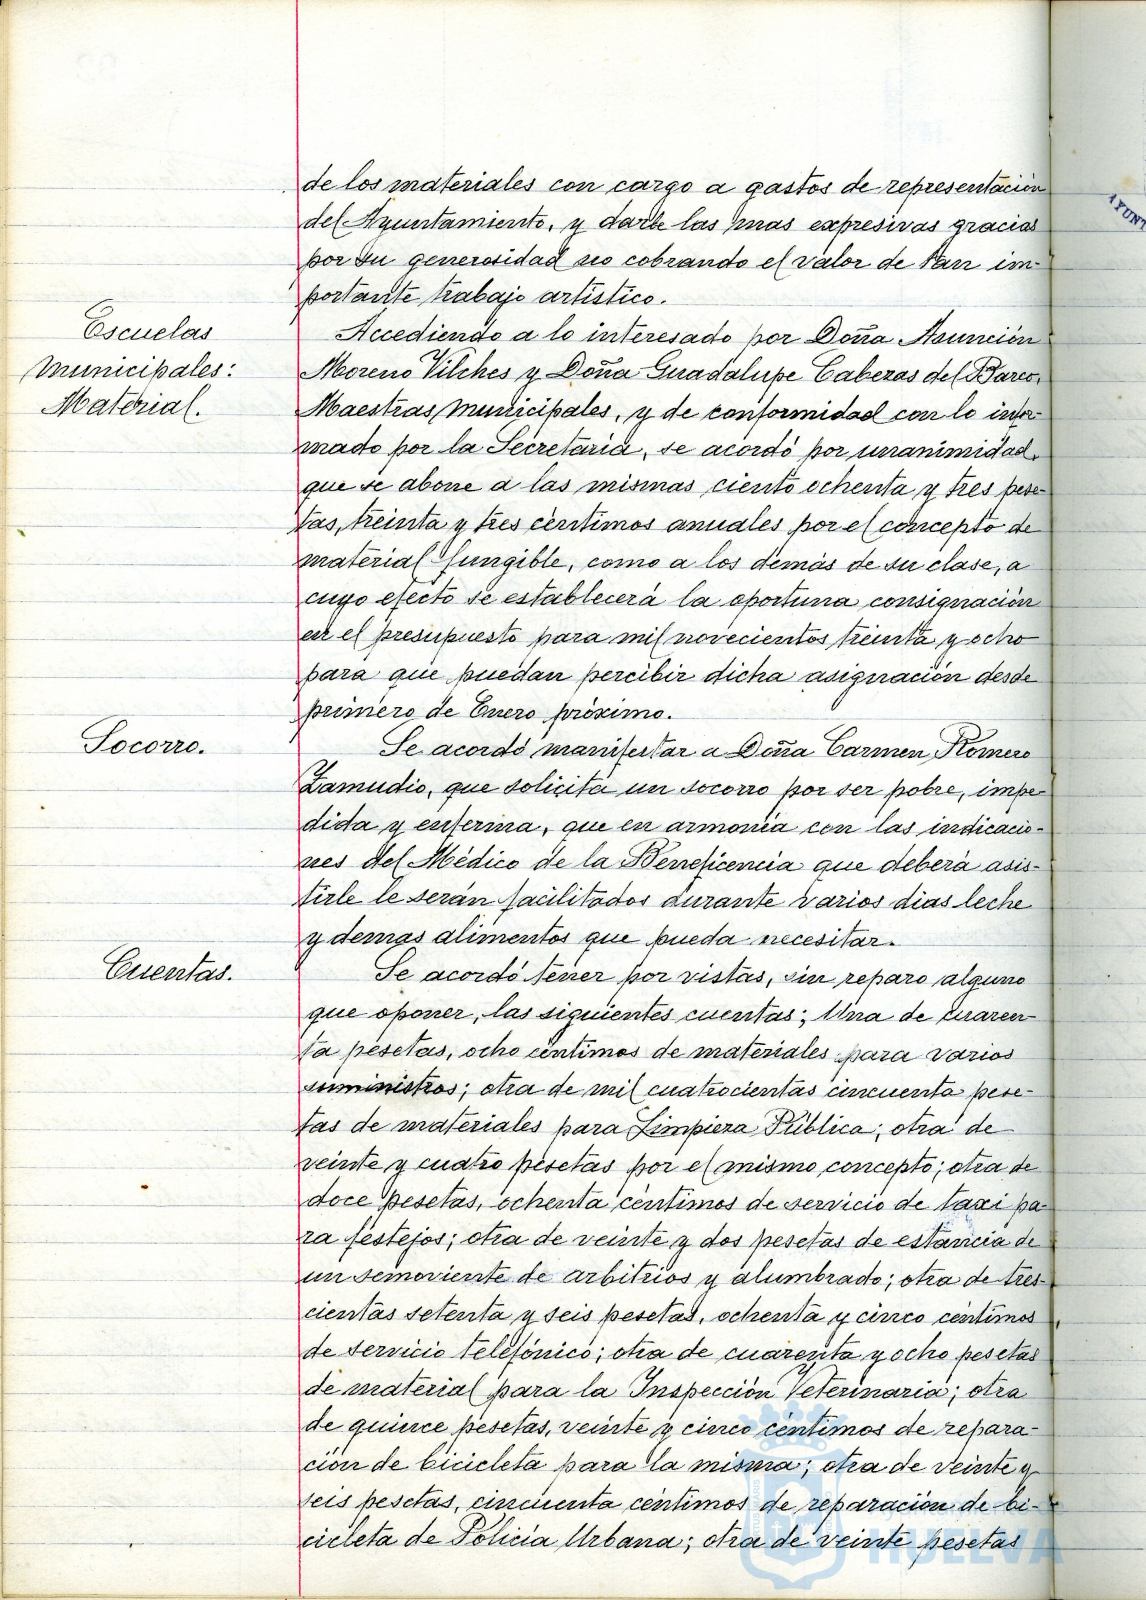 de los materiales con cargo a gastos de representación
del Ayuntamiento, y darle las mas expresivas gracias
por su generosidad no cobrando el valor de tan im-
portante trabajo artístico.
Escuelas
Municipales:
Material.
Accediendo a lo interesado por Doña Asunción
Moreno Vilches y Doña Guadalupe Cabezas del Barco,
Maestras municipales, y de conformidad con lo infor-
mado por la Secretaria, se acordó por unanimidad,
que se abone a las mismas ciento ochenta y tres pese-
tas, treinta y tres céntimos anuales por el concepto de
material fungible, como a los demás de su clase, a
cuyo efecto se establecerá la oportuna consignación
en el presupuesto para mil novecientos treinta y ocho
para que puedan percibir dicha asignación desde
primero de Enero próximo.
Socorro.
Se acordó manifestar a Doña Carmen Romero
Zamudio, que solicita un socorro por ser pobre, impe-
dida y enferma, que en armonía con las indicacio-
nes del Médico de la Beneficencia que deberá asis-
tirle le serán facilitados durante varios dias leche
y demas alimentos que pueda necesitar.
Cuentas.
Se acordó tener por vistas, sin reparo alguno
que oponer, las siguientes cuentas: Una de cuaren-
ta pesetas, ocho céntimos de materiales para varios
suministros; otra de mil cuatrocientas cincuenta pese-
tas de materiales para Limpieza Pública; otra de
veinte y cuatro pesetas por el mismo concepto; otra de
doce pesetas, ochenta céntimos de servicio de taxi pa-
ra festejos; otra de veinte y dos pesetas de estancia de
un semoviente de arbitrios y alumbrado; otra de tres-
cientas setenta y seis pesetas, ochenta y cinco céntimos
de servicio telefónico; otra de cuarenta y ocho pesetas
de material para la Inspección Veterinaria; otra
de quince pesetas, veinte y cinco céntimos de repara-
ción de bicicleta para la misma; otra de veinte y
seis pesetas, cincuenta céntimos de reparación de bi-
cicleta de Policía Urbana; otra de veinte pesetas
AYUNT
HUELVA